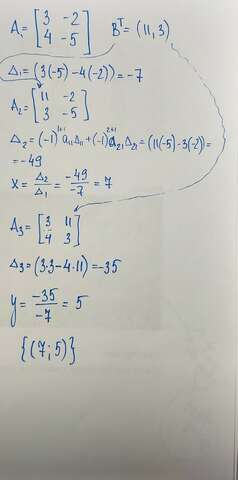 A₁ = [3 -2
4 -5] Bᵀ = (11, 3)
Δ₁ = (3(-5) - 4(-2)) = -7
A₂ = [11 -2
3 -5]
Δ₂ = (-1)¹⁺¹ a₁₁Δ₁₁ + (-1)²⁺¹ a₂₁Δ₂₁ = (11(-5) - 3(-2)) =
= -49
x = Δ₂/Δ₁ = -49/-7 = 7
A₃ = [3 11
4 3]
Δ₃ = (3·3 - 4·11) = -35
y = -35/-7 = 5
{(7; 5)}